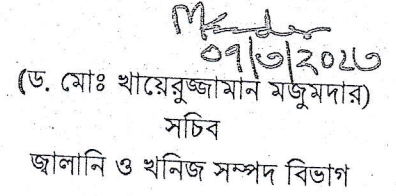 ০৭/৩/২০২৩
(ড. মোঃ খায়েরুজ্জামান মজুমদার)
সচিব
জ্বালানি ও খনিজ সম্পদ বিভাগ